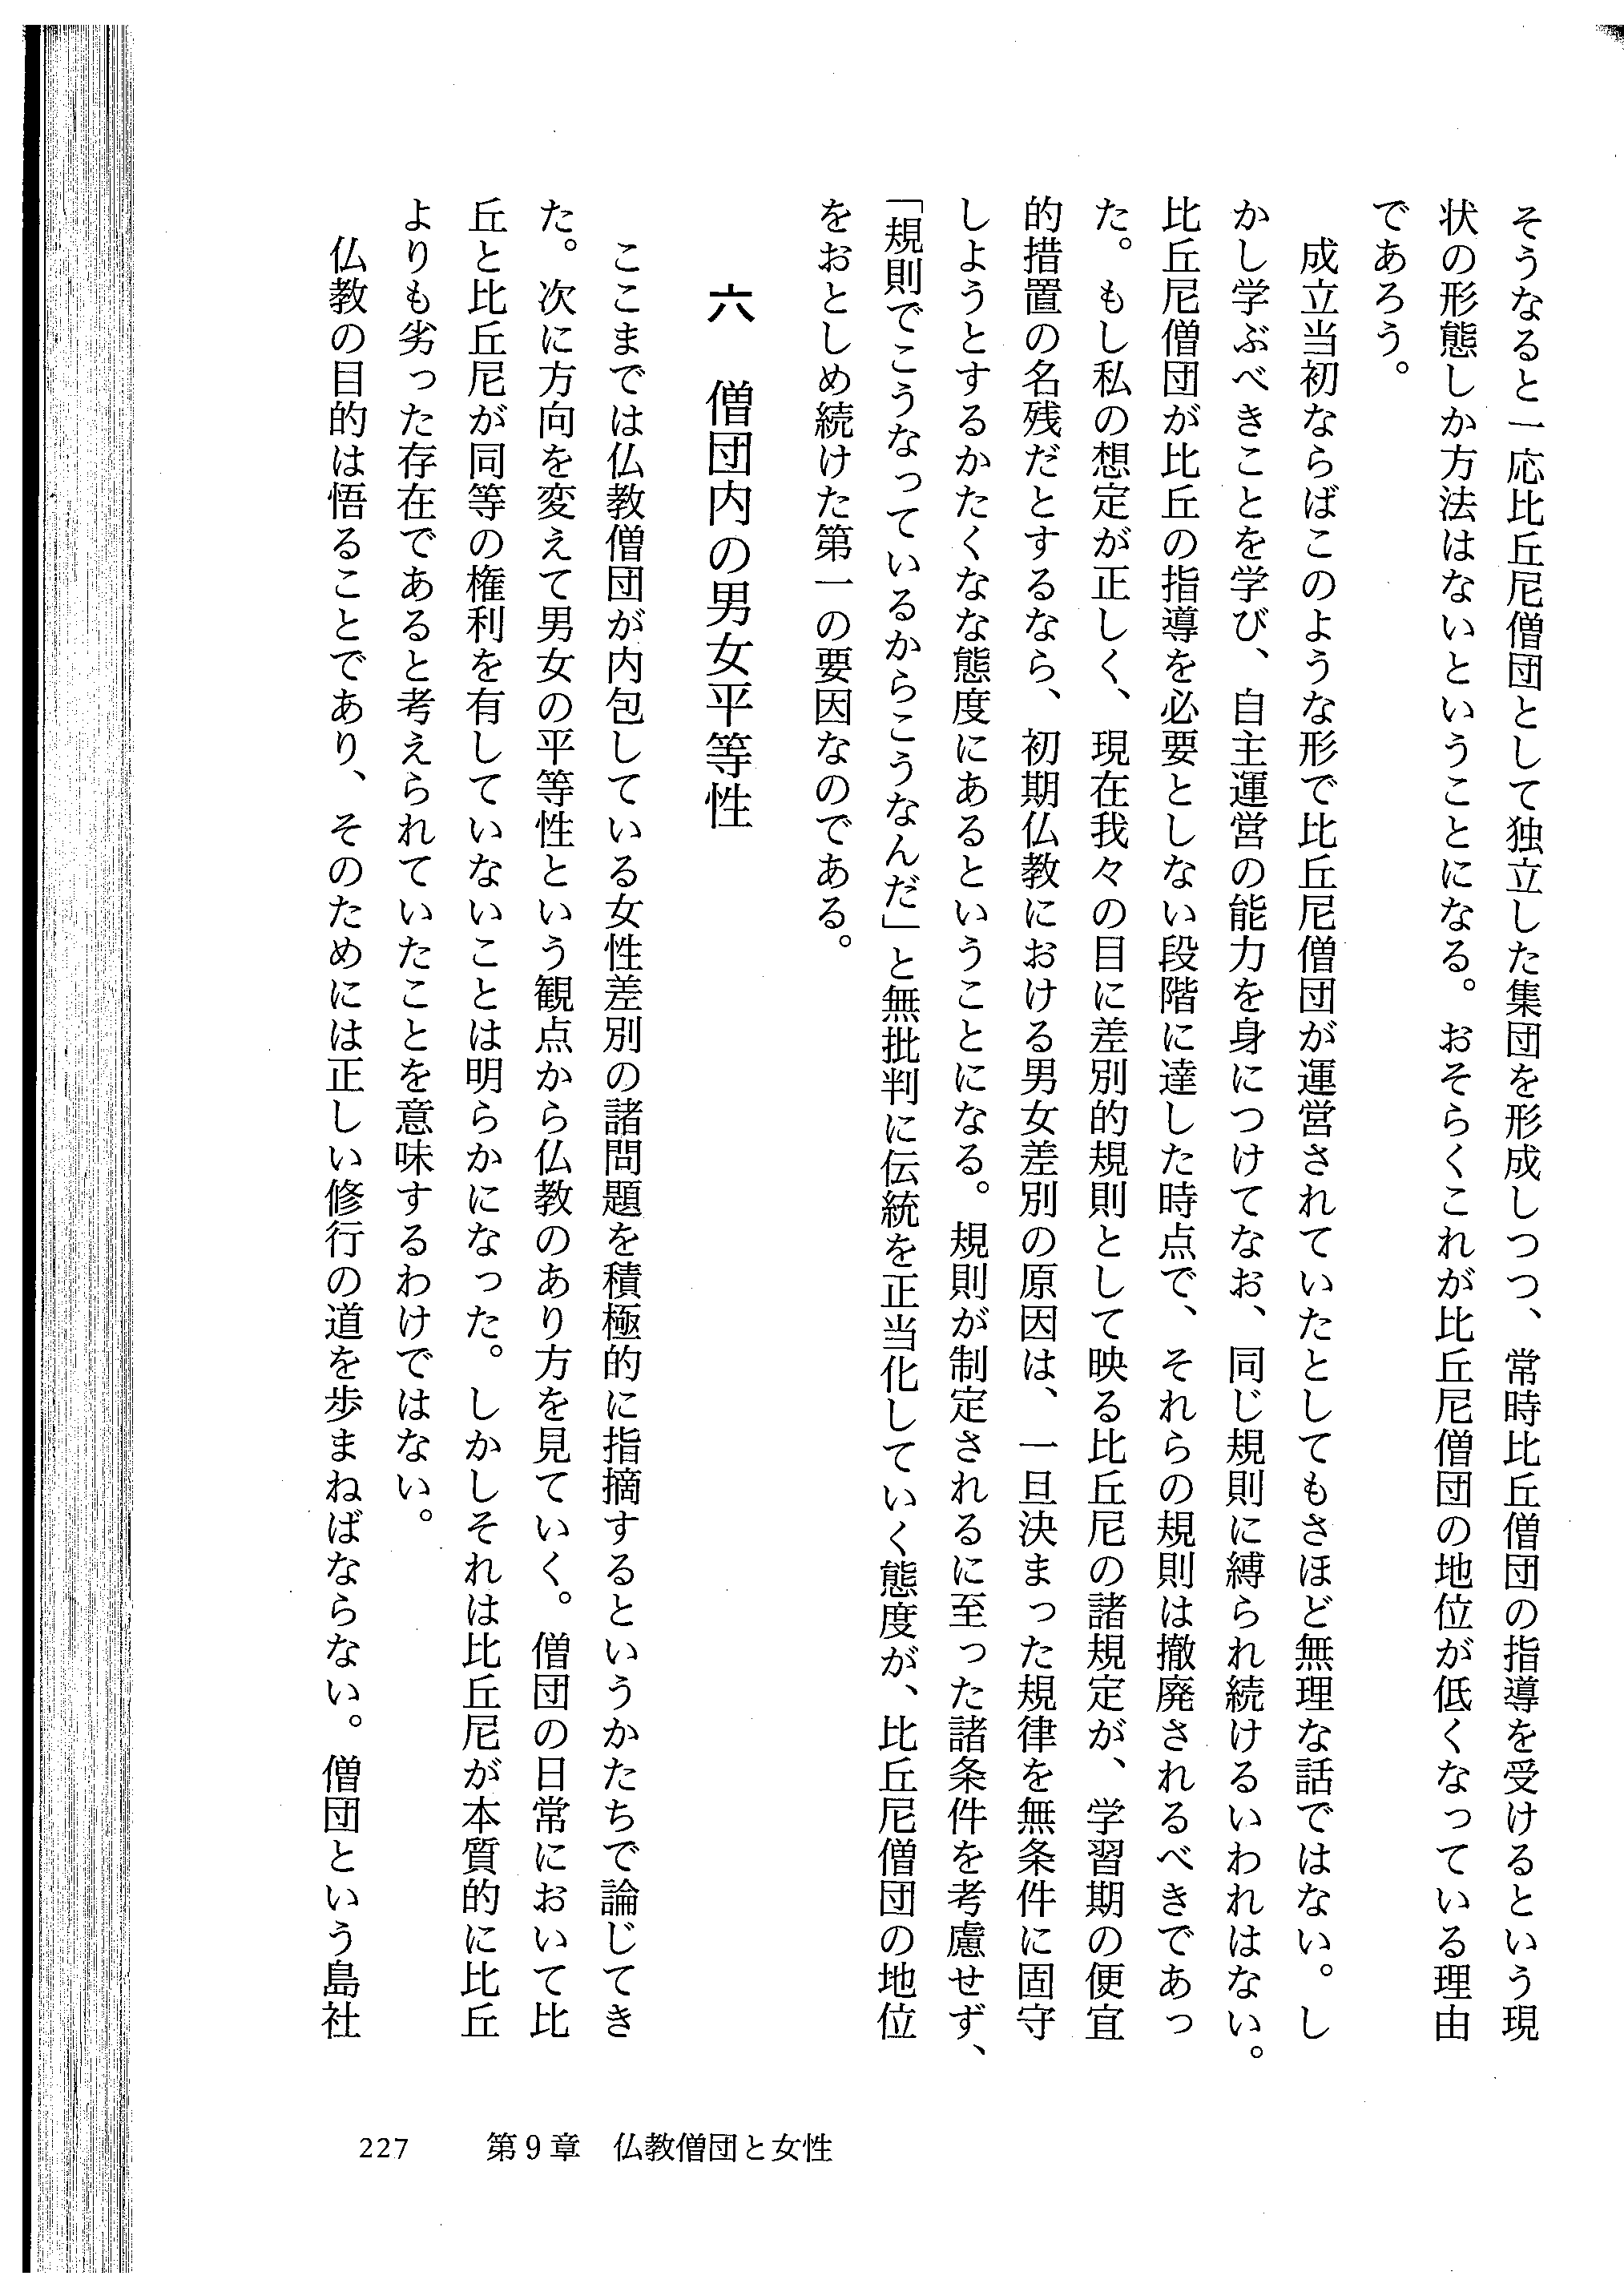 そうなると一応比丘尼僧団として独立した集団を形成しつつ、常時比丘僧団の指導を受けるという現
状の形態しか方法はないということになる。おそらくこれが比丘尼僧団の地位が低くなっている理由
であろう。
成立当初ならばこのような形で比丘尼僧団が運営されていたとしてもさほど無理な話ではない。し
かし学ぶべきことを学び、自主運営の能力を身につけてなお、同じ規則に縛られ続けるいわれはない。
比丘尼僧団が比丘の指導を必要としない段階に達した時点で、それらの規則は撤廃されるべきであっ
た。もし私の想定が正しく、現在我々の目に差別的規則として映る比丘尼の諸規定が、学習期の便宜
的措置の名残だとするなら、初期仏教における男女差別の原因は、一旦決まった規律を無条件に固守
しようとするかたくなな態度にあるということになる。規則が制定されるに至った諸条件を考慮せず、
「規則でこうなっているからこうなんだ」と無批判に伝統を正当化していく態度が、比丘尼僧団の地位
をおとしめ続けた第一の要因なのである。
六　僧団内の男女平等性
ここまでは仏教僧団が内包している女性差別の諸問題を積極的に指摘するというかたちで論じてき
た。次に方向を変えて男女の平等性という観点から仏教のあり方を見ていく。僧団の日常において比
丘と比丘尼が同等の権利を有していないことは明らかになった。しかしそれは比丘尼が本質的に比丘
よりも劣った存在であると考えられていたことを意味するわけではない。
仏教の目的は悟ることであり、そのためには正しい修行の道を歩まねばならない。僧団という島社
227　第9章　仏教僧団と女性